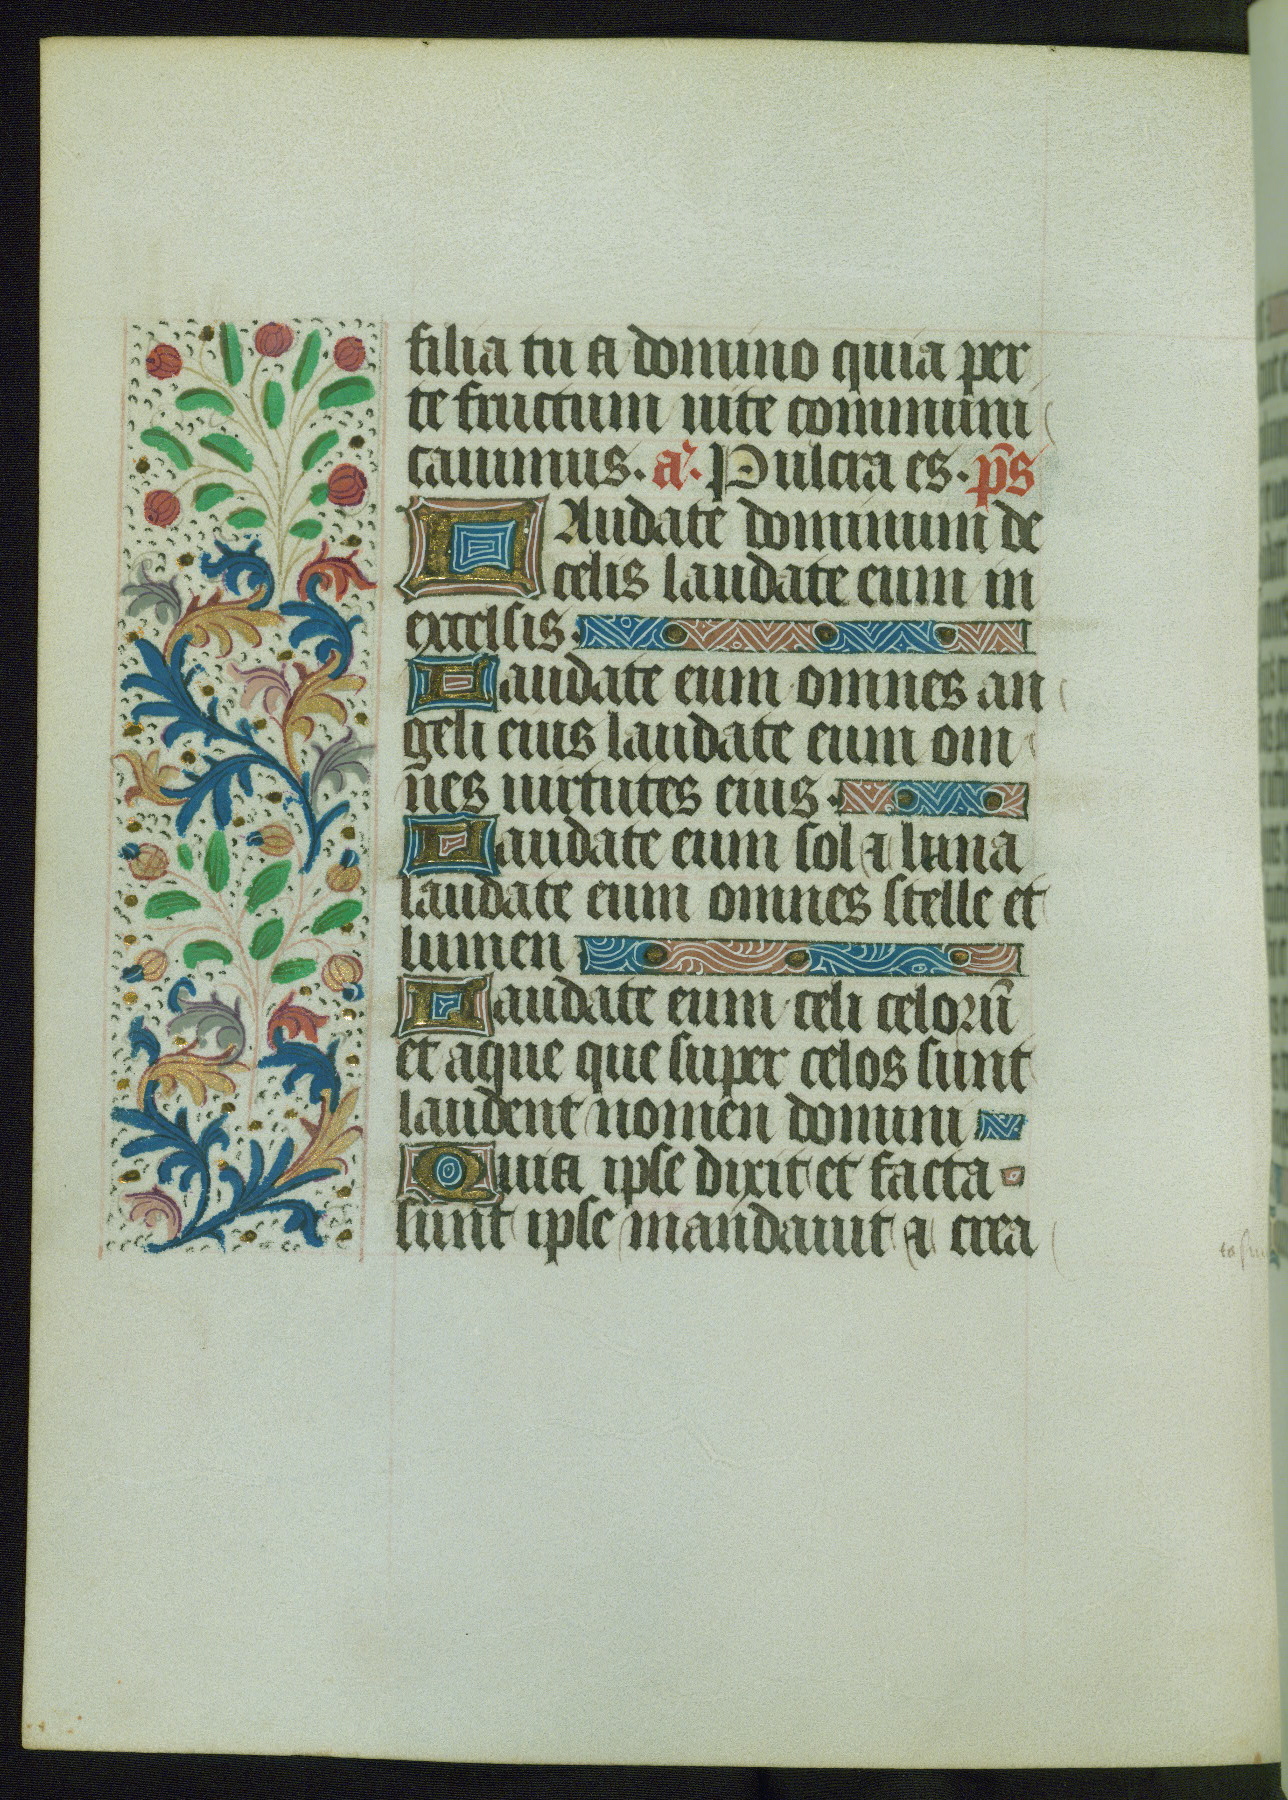 filia tu a domino quia per
te fructum uite communi
cauimus. a. Pulcra es. ps
Laudate dominum de
celis laudate eum in
excelsis.
Laudate eum omnes an
geli eius laudate eum om
nes uirtutes eius.
Laudate eum sol a luna
laudate eum omnes stelle et
lumen
Laudate eum celi celorū
et aque que super celos sunt
laudent nomen domini
Quia ipse dixit et facta
sunt ipse mandauit a crea